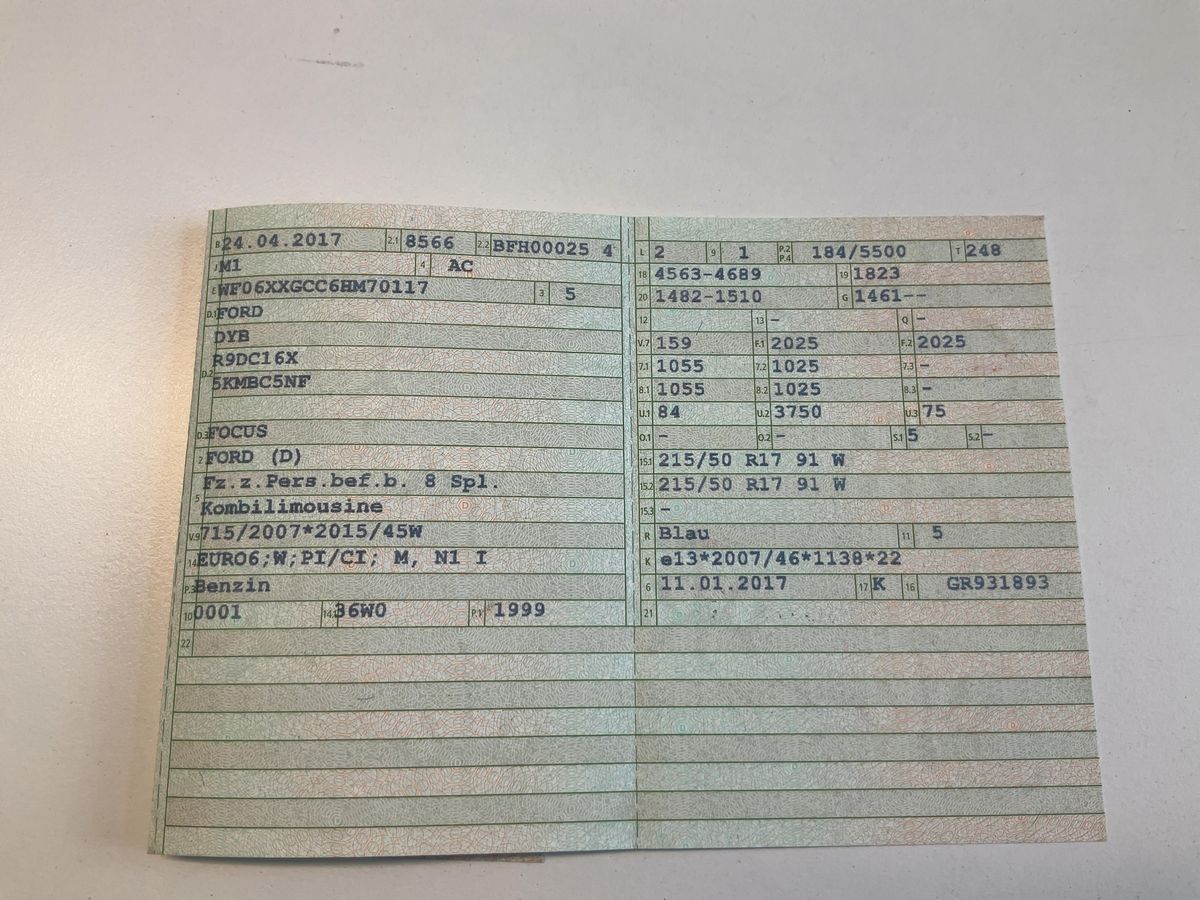 B 24.04.2017 2.1 8566 2.2 BFH00025 4
J M1 4 AC
E WF06XXGCC6HM70117 3 5
D.1 FORD
DYB
D.2 R9DC16X
5KMBC5NF
D.3 FOCUS
2 FORD (D)
5 Fz.z.Pers.bef.b. 8 Spl.
Kombilimousine
V.9 715/2007*2015/45W
14 EURO6;W;PI/CI; M, N1 I
P.3 Benzin
10 0001 14.1 36W0 P.1 1999
22
L 2 9 1 P.2 P.4 184/5500 T 248
18 4563-4689 19 1823
20 1482-1510 G 1461--
12 13 - Q -
V.7 159 F.1 2025 F.2 2025
7.1 1055 7.2 1025 7.3 -
8.1 1055 8.2 1025 8.3 -
U.1 84 U.2 3750 U.3 75
O.1 - O.2 - S.1 5 S.2 -
15.1 215/50 R17 91 W
15.2 215/50 R17 91 W
15.3 -
R Blau 11 5
K e13*2007/46*1138*22
6 11.01.2017 17 K 16 GR931893
21